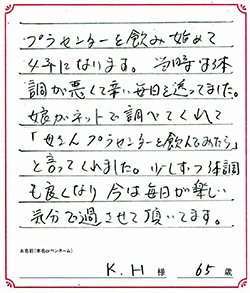 プラセンターを飲み始めて
4年になります。当時は体
調が悪くて辛い毎日を送ってました。
娘がネットで調べてくれて
「母さんプラセンターを飲んでみたら」
と言ってくれました。少しずつ体調
も良くなり今は毎日が楽しい
気分で過させて頂いてます。
お名前(本名orペンネーム)
K.H 様 65 歳